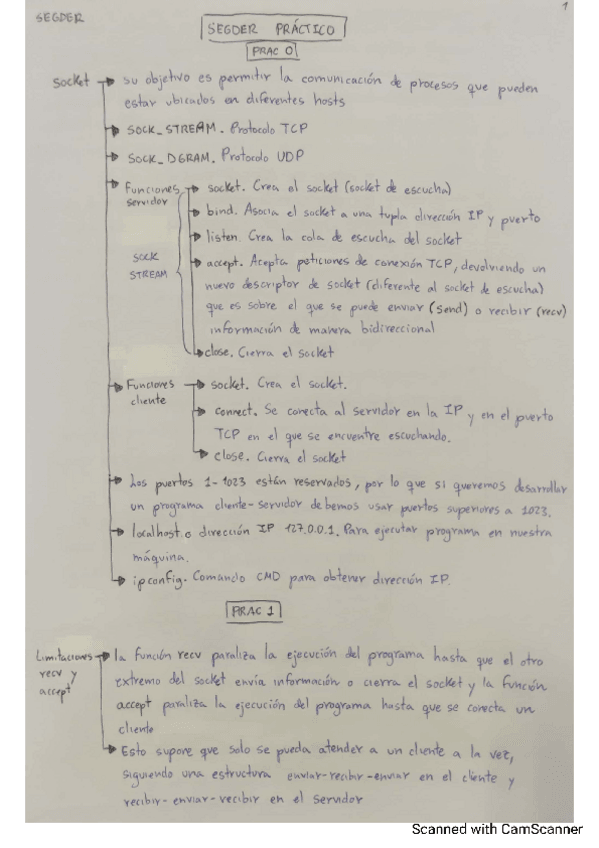 SEGDER
1
SEGDER PRÁCTICO
PRAC 0
Socket → su objetivo es permitir la comunicación de procesos que pueden
estar ubicados en diferentes hosts
SOCK_STREAM. Protocolo TCP
SOCK_DGRAM. Protocolo UDP
Funciones servidor → socket. Crea el socket (socket de escucha)
bind. Asocia el socket a una tupla dirección IP y puerto
listen. Crea la cola de escucha del socket
SOCK STREAM
accept. Acepta peticiones de conexión TCP, devolviendo un
nuevo descriptor de socket (diferente al socket de escucha)
que es sobre el que se puede enviar (send) o recibir (recv)
información de manera bidireccional
close. Cierra el socket
Funciones cliente → socket. Crea el socket.
connect. Se conecta al servidor en la IP y en el puerto
TCP en el que se encuentre escuchando.
close. Cierra el socket
Los puertos 1-1023 están reservados, por lo que si queremos desarrollar
un programa cliente-servidor debemos usar puertos superiores a 1023.
localhost o dirección IP 127.0.0.1. Para ejecutar programa en nuestra
máquina.
ipconfig. Comando CMD para obtener dirección IP.
PRAC 1
Limitaciones recv y accept → la función recv paraliza la ejecución del programa hasta que el otro
extremo del socket envía información o cierra el socket y la función
accept paraliza la ejecución del programa hasta que se conecta un
cliente
Esto supone que solo se pueda atender a un cliente a la vez,
siguiendo una estructura enviar-recibir-enviar en el cliente y
recibir-enviar-recibir en el servidor
Scanned with CamScanner